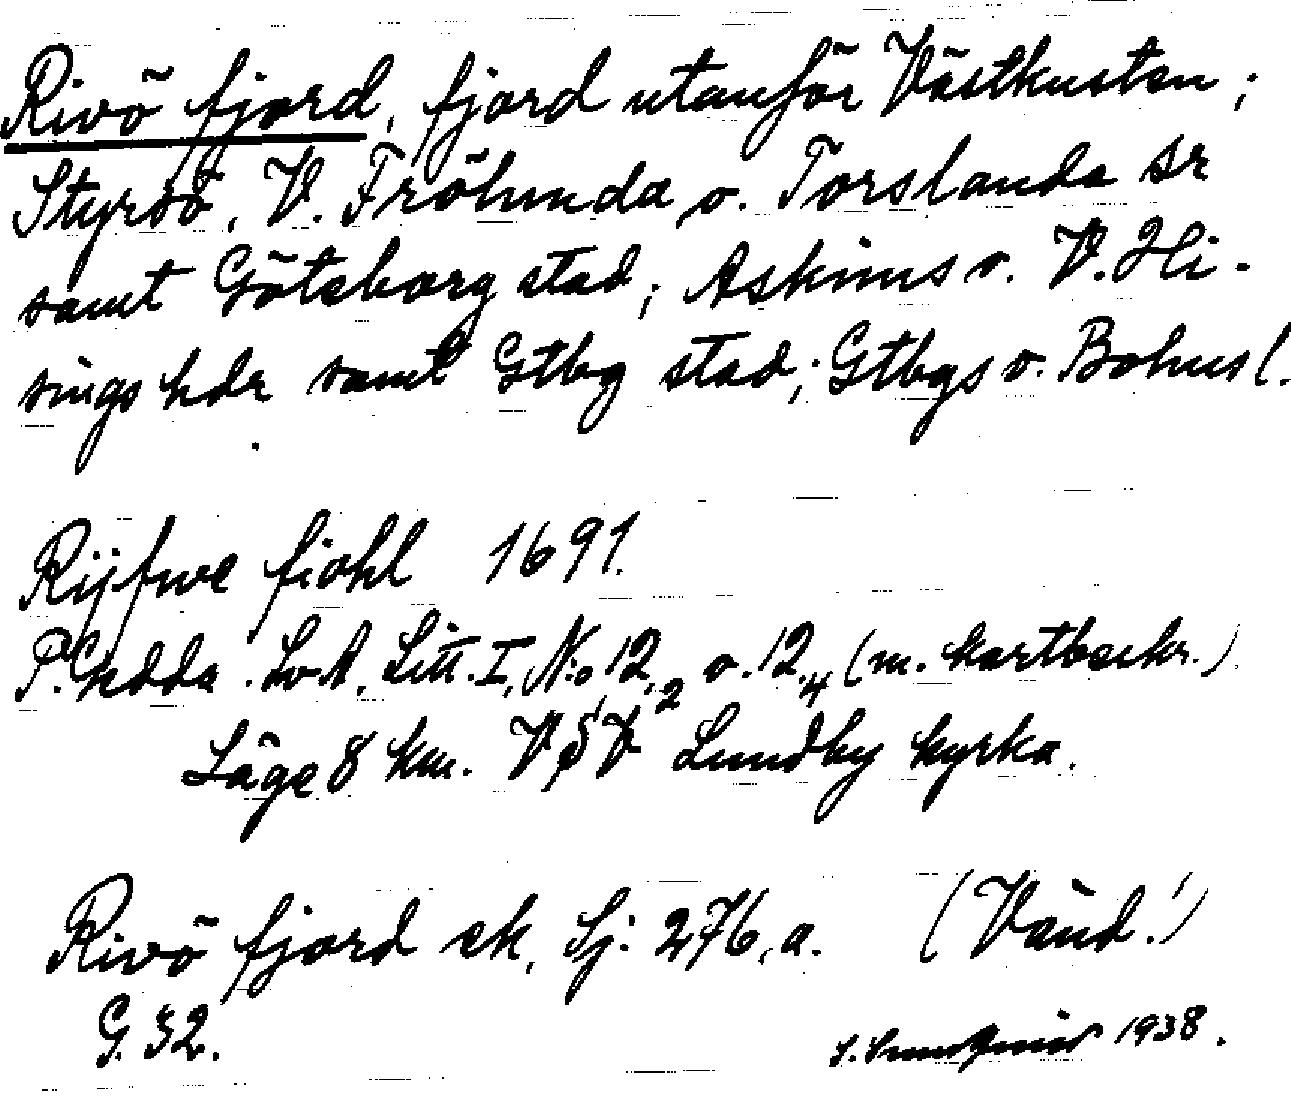 Rivö fjord, fjord utanför Västkusten;
Styrsö, V. Frölunda o. Torslanda sr
samt Göteborg stad; Askims o. V. Hi-
sings hdr samt Gtbg stad; Gtbgs o. Bohusl.
Rijfwe fiohl 1691.
P. Gedda. LvA, Litt. I, N:o 12,2 o. 12,4 (m. kartbeskr.)
Läge 8 km. VSV Lundby kyrka.
Rivö fjord ek, Sj. 276, a. (Vänd!)
G. 32.
1938.